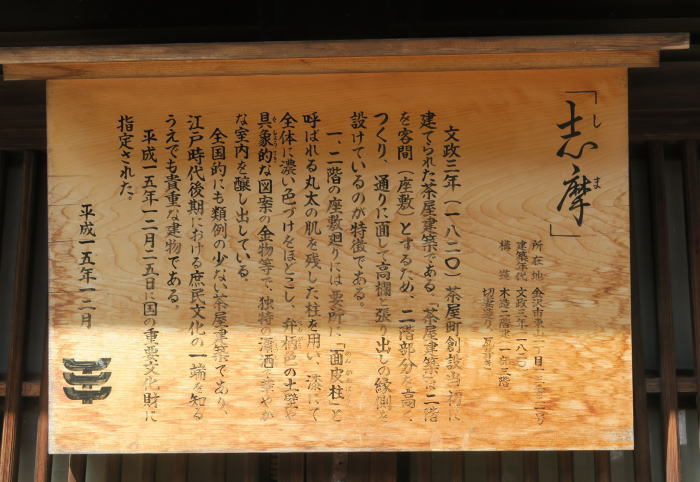 「志摩」
しま
所在地 金沢市東山一丁目一三番二一号
建築年代 文政三年(一八二〇)
構造 木造二階建一部三階
切妻造り、瓦葺き
文政三年(一八二〇)茶屋町創設当初に
建てられた茶屋建築である。「茶屋建築」は二階
を客間(座敷)とするため、二階部分を高く
つくり、通りに面して高欄と張り出しの縁側を
設けているのが特徴である。
一、二階の座敷廻りには要所に「面皮柱」と
呼ばれる丸太の肌を残した柱を用い、漆にて
全体に濃い色づけをほどこし、弁柄色の土壁や
具象的な図案の金物等で、独特の瀟洒で華やか
な室内を醸し出している。
全国的にも類例の少ない茶屋建築であり、
江戸時代後期における庶民文化の一端を知る
うえでも貴重な建物である。
平成一五年一二月二五日に国の重要文化財に
指定された。
平成一五年一二月